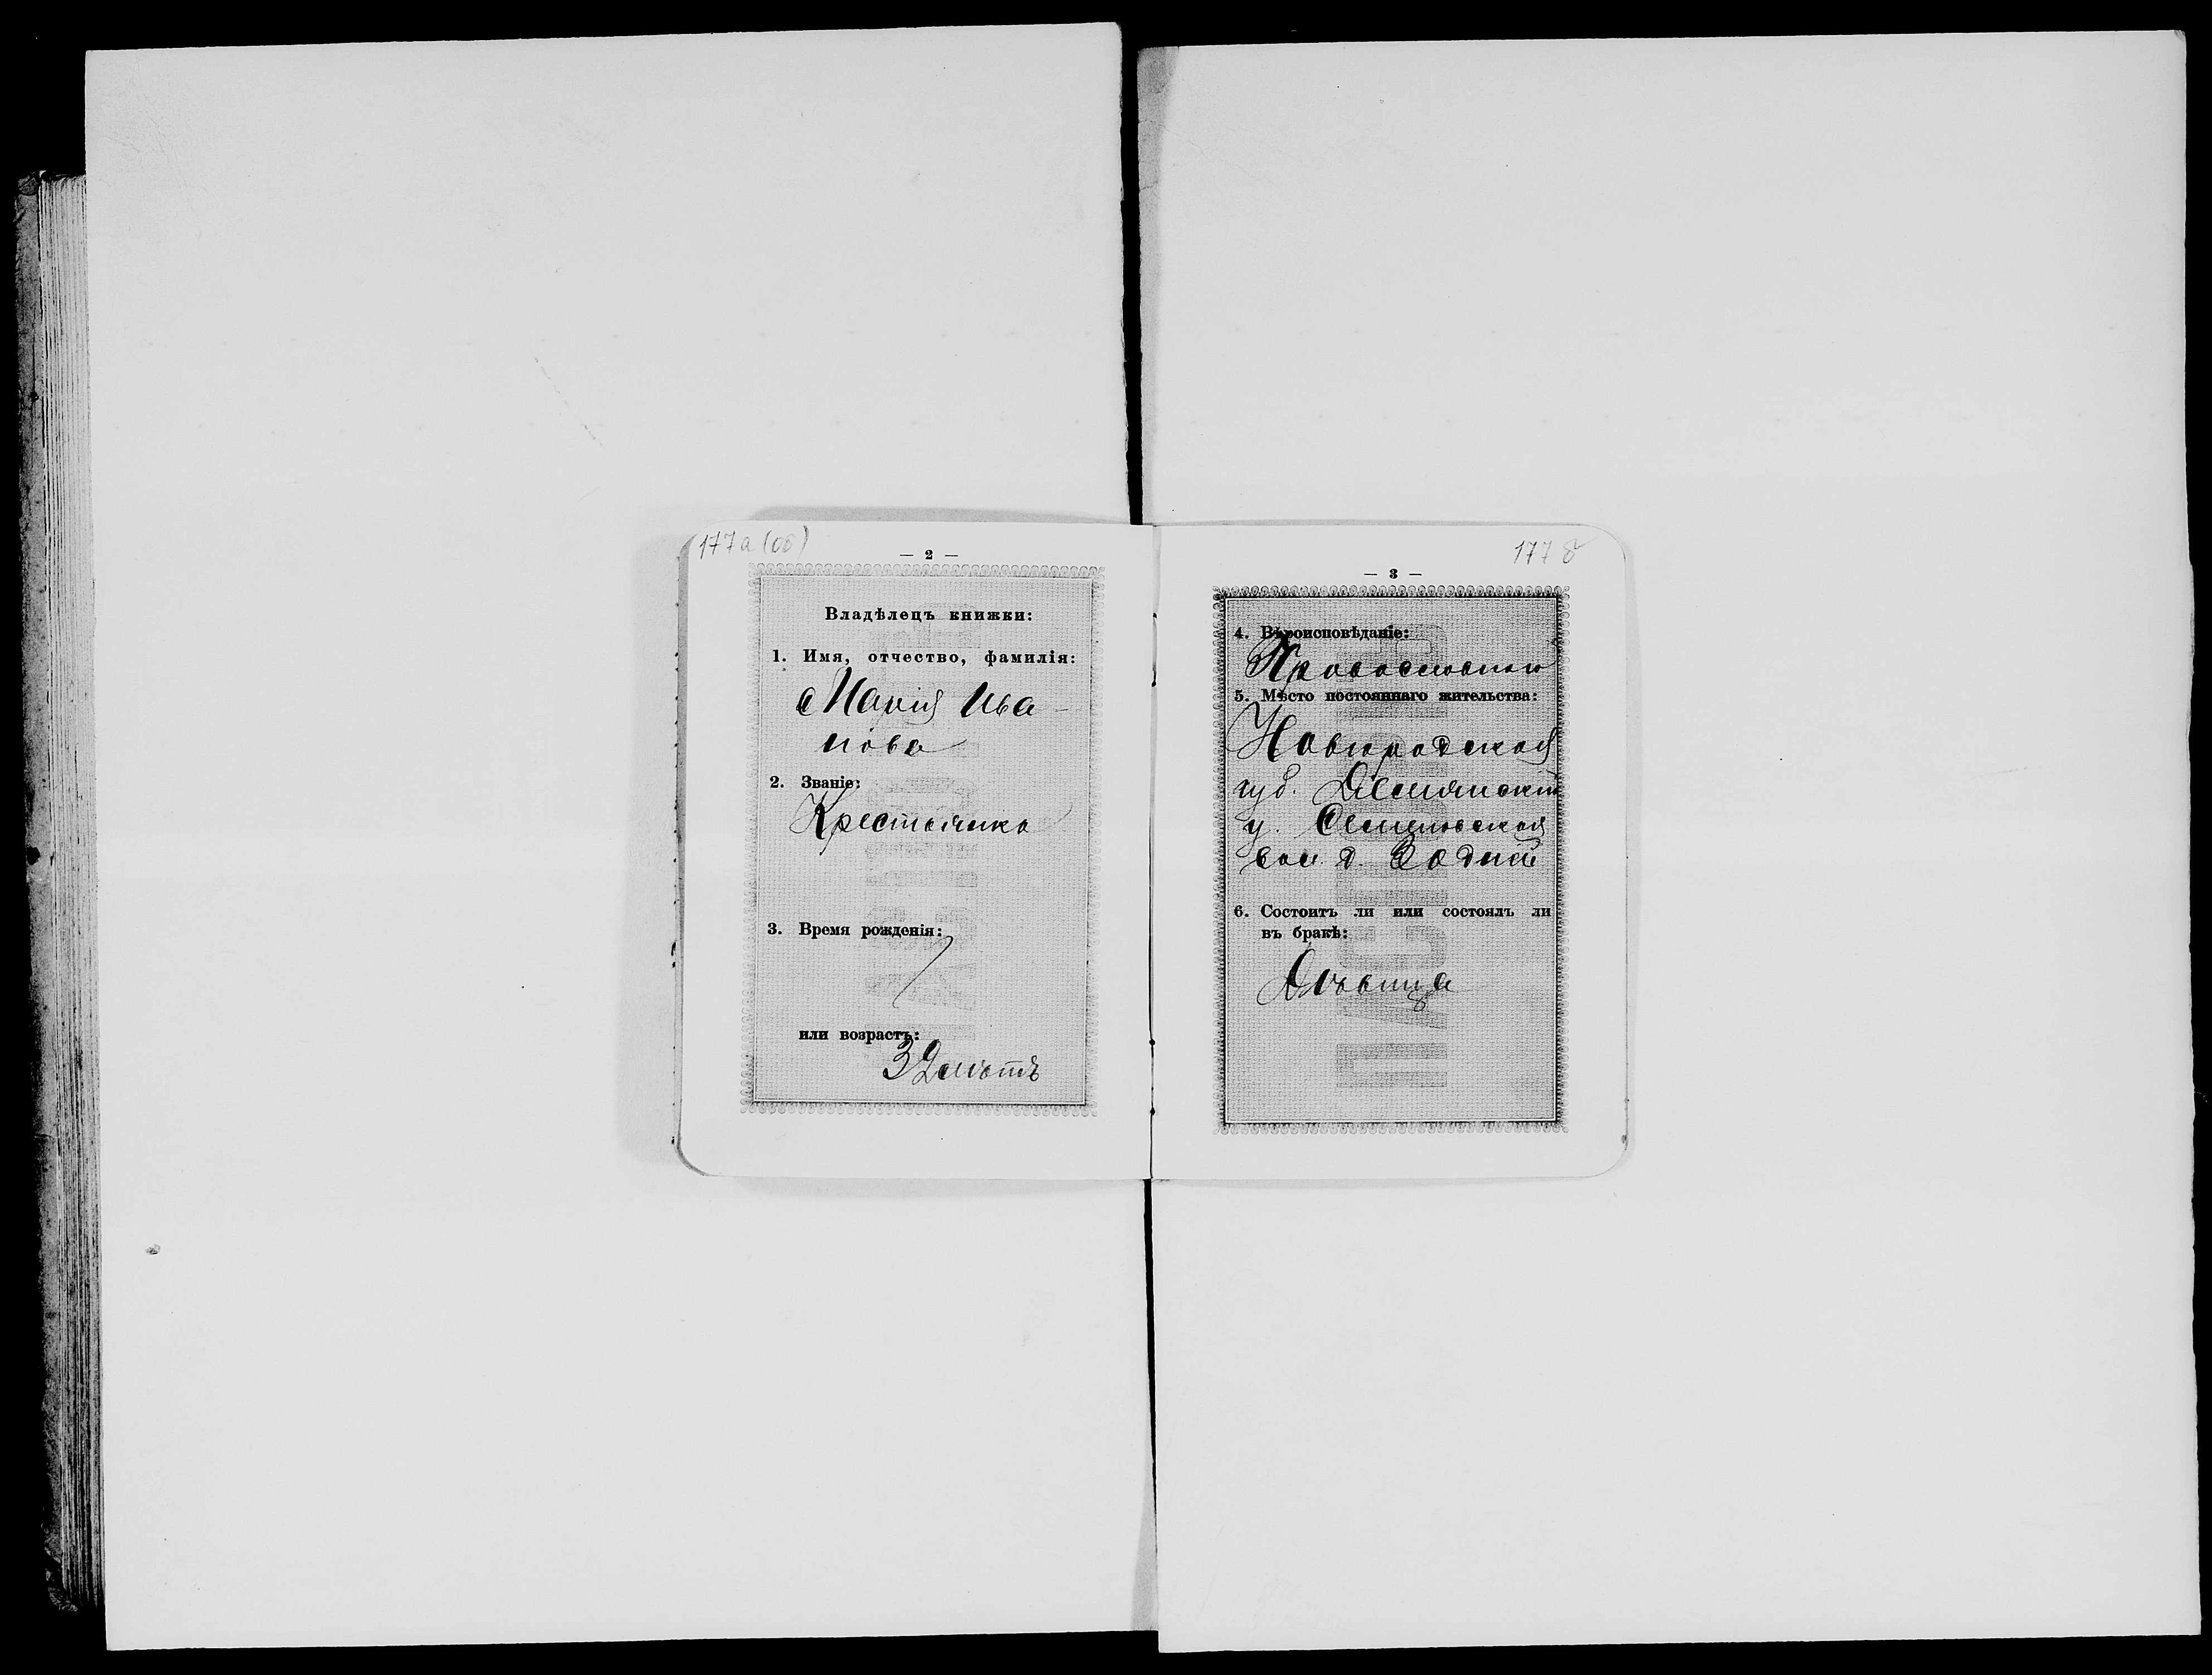 177а (об)
— 2 —
Владѣлецъ книжки:
1. Имя, отчество, фамилія:
Марія Ива-
нова
2. Званіе:
Крестьянка
3. Время рожденія:
или возрастъ:
32 лѣтъ
177 б
— 3 —
4. Вѣроисповѣданіе:
Православнаго
5. Мѣсто постояннаго жительства:
Новгородской
губ. Демянскій
у. Семеновской
вол. д. Задней
6. Состоитъ ли или состоялъ ли
въ бракѣ:
Дѣвица
ПАСПОРТНАЯ